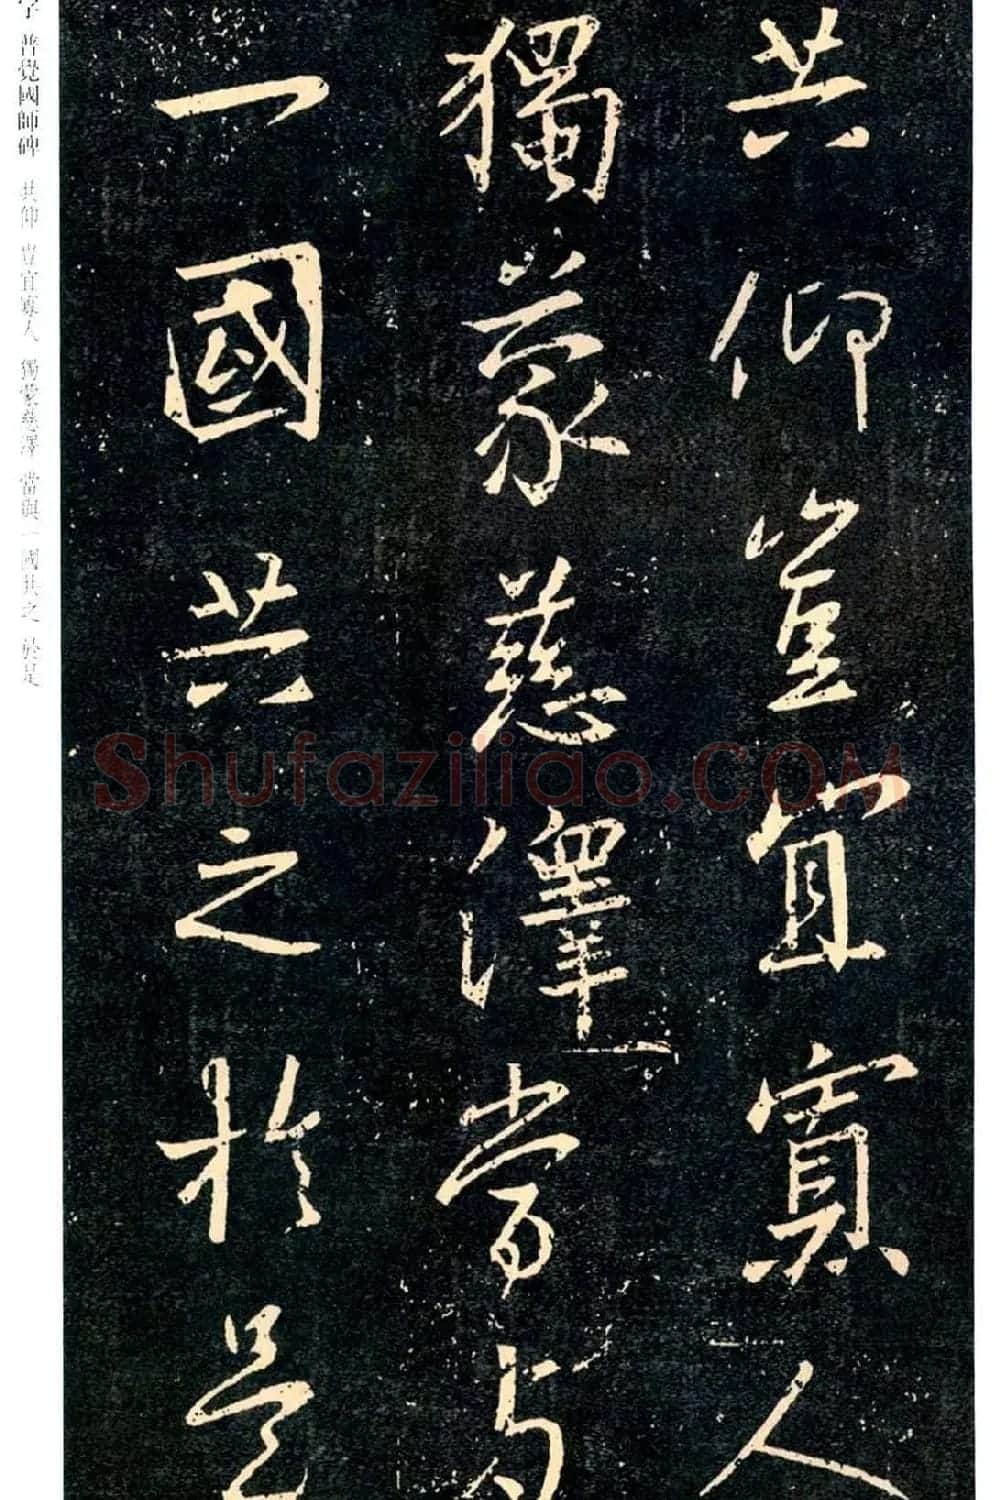 共仰豈宜寡人
獨蒙慈澤當与
一國共之於是
普覺國師碑 共仰 豈宜寡人 獨蒙慈澤 當與一國共之 於是
Shufaziliao.COM